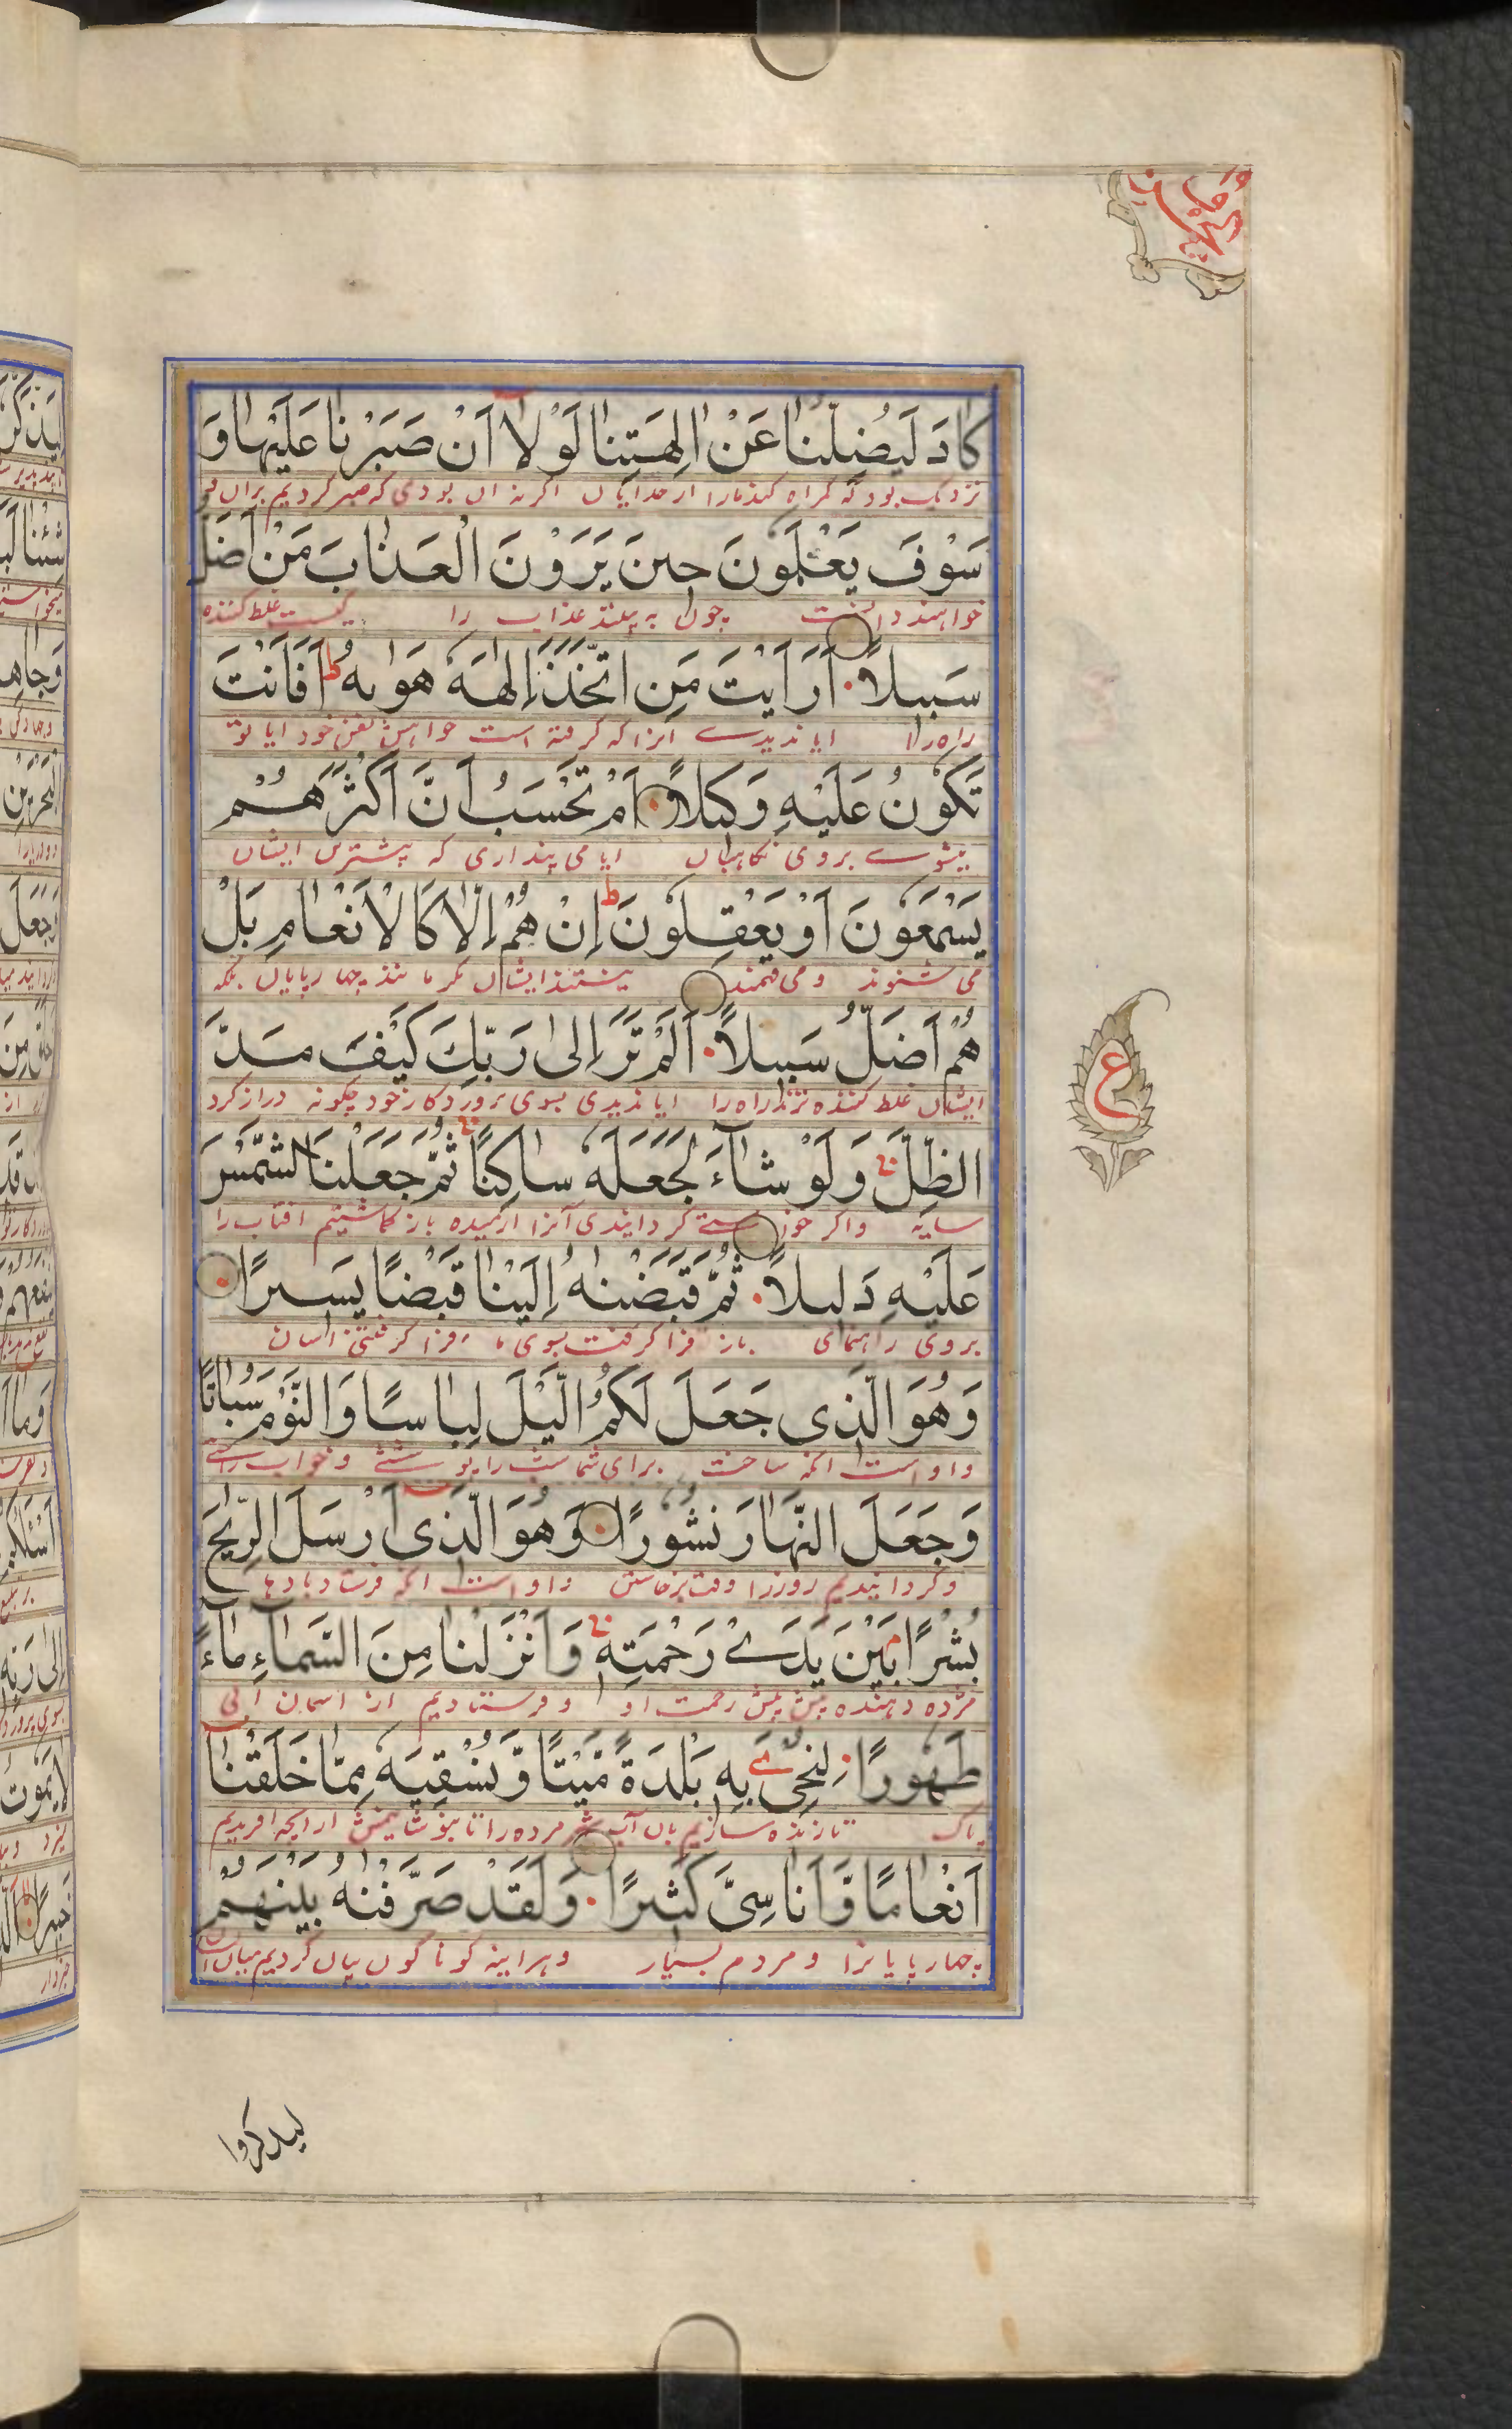 كادَ لَيُضِلُّنا عَنْ الِهَتِنا لَوْلا اَنْ صَبَرْنا عَلَيْها وَ
نزدیک بود که کمراه کند مارا از خدایان اکر نه ان بودی که صبر کردیم بران
سَوْفَ يَعْلَمُونَ حينَ يَرَوْنَ الْعَذابَ مَنْ اَضَلُّ
خواهند دانست چون به بینند عذاب را کیست غلط کننده
سَبيلاً اَرَاَيْتَ مَنِ اتَّخَذَ اِلهَهُ هَوٰيهُ ط اَفَاَنْتَ
راه را ایا ندیدے انرا که کرفته است خواهش نفس خود ایا تو
تَكُونُ عَلَيْهِ وَكيلاً اَمْ تَحْسَبُ اَنَّ اَكْثَرَهُمْ
میشوے بروی نکاهبان ایا می پنداری که بیشترین ایشان
يَسْمَعُونَ اَوْ يَعْقِلُونَ ط اِنْ هُمْ اِلّا كَالْاَنْعامِ بَلْ
می شنوند و می فهمند نیستند ایشان مکر مانند چهارپایان بلکه
هُمْ اَضَلُّ سَبيلاً اَلَمْ تَرَ اِلى رَبِّكَ كَيْفَ مَدَّ
ایشان غلط کننده ترند راه را ایا ندیدی بسوی پروردکار خود چکونه دراز کرد
الظِّلَّ وَلَوْ شاءَ لَجَعَلَهُ ساكِنًا ثُمَّ جَعَلْنَا الشَّمْسَ
سایه واکر خواستے کردایندی آنرا ارمیده باز کماشتیم افتاب را
عَلَيْهِ دَليلاً ثُمَّ قَبَضْنٰهُ اِلَيْنا قَبْضًا يَسيرًا
بروی راهنمای باز فرا کرفت بسوی ما فرا کرفتنی اسان
وَهُوَ الَّذى جَعَلَ لَكُمُ الَّيْلَ لِباسًا وَالنَّوْمَ سُباتًا
و او است انکه ساخت برای شما شب را پوششے و خواب را
وَجَعَلَ النَّهارَ نُشُورًا وَهُوَ الَّذى اَرْسَلَ الرِّيحَ
و کردانیدیم روزرا وقت برخاستن و او است انکه فرستاد بادها
بُشْرًا بَيْنَ يَدَىْ رَحْمَتِهِ وَاَنْزَلْنا مِنَ السَّماءِ ماءً
مژده دهنده پیش رحمت او و فرستادیم از اسمان ابی
طَهُورًا لِنُحْيِىَ بِهِ بَلْدَةً مَّيْتًا وَّنُسْقِيَهُ مِمّا خَلَقْنا
پاک تا زنده سازیم بان آب شهر مرده را تا بنوشانیمش از انچه افریدیم
اَنْعامًا وَّاَناسِىَّ كَثيرًا وَلَقَدْ صَرَّفْنٰهُ بَيْنَهُمْ
چهارپایانرا و مردم بسیار و هراینه کوناکون بیان کردیم میان
ع
ليذكروا